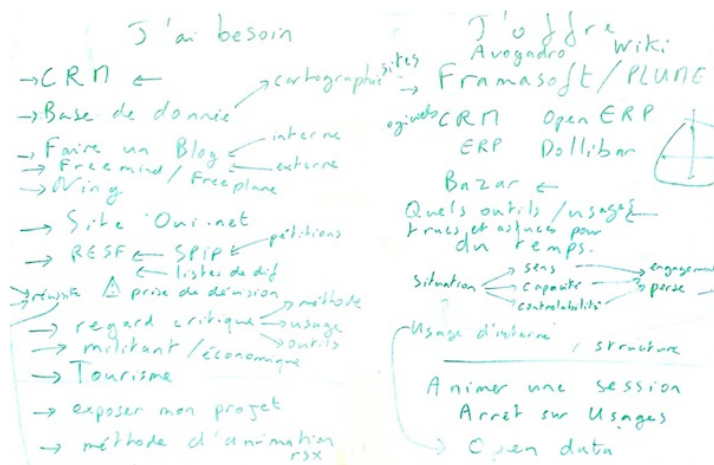 J'ai besoin
→ CRM ←
→ Base de donnée → cartographie
→ Faire un Blog ← interne
← externe
→ Freemind / Freeplane
→ Ning
→ Site Oui.net
→ RESF ← SPIP ← pétitions
← listes de dif
→ réussite ⚠ prise de décision
→ regard critique → méthode
→ usage
→ outils
→ militant / économique
→ Tourisme
→ exposer mon projet
→ méthode d'animation
rsx
J'offre
Avogadro Wiki
sites
→ Framasoft / PLUME
logiciels CRM Open ERP
ERP Dollibar
Bazar ←
Quels outils / usages ←
trucs et astuces pour
du temps.
situation → sens → engagement
→ capacité → perse
→ controlabilité
Usage d'interne
/ structure
Animer une session
Arrêt sur Usages
→ Open data